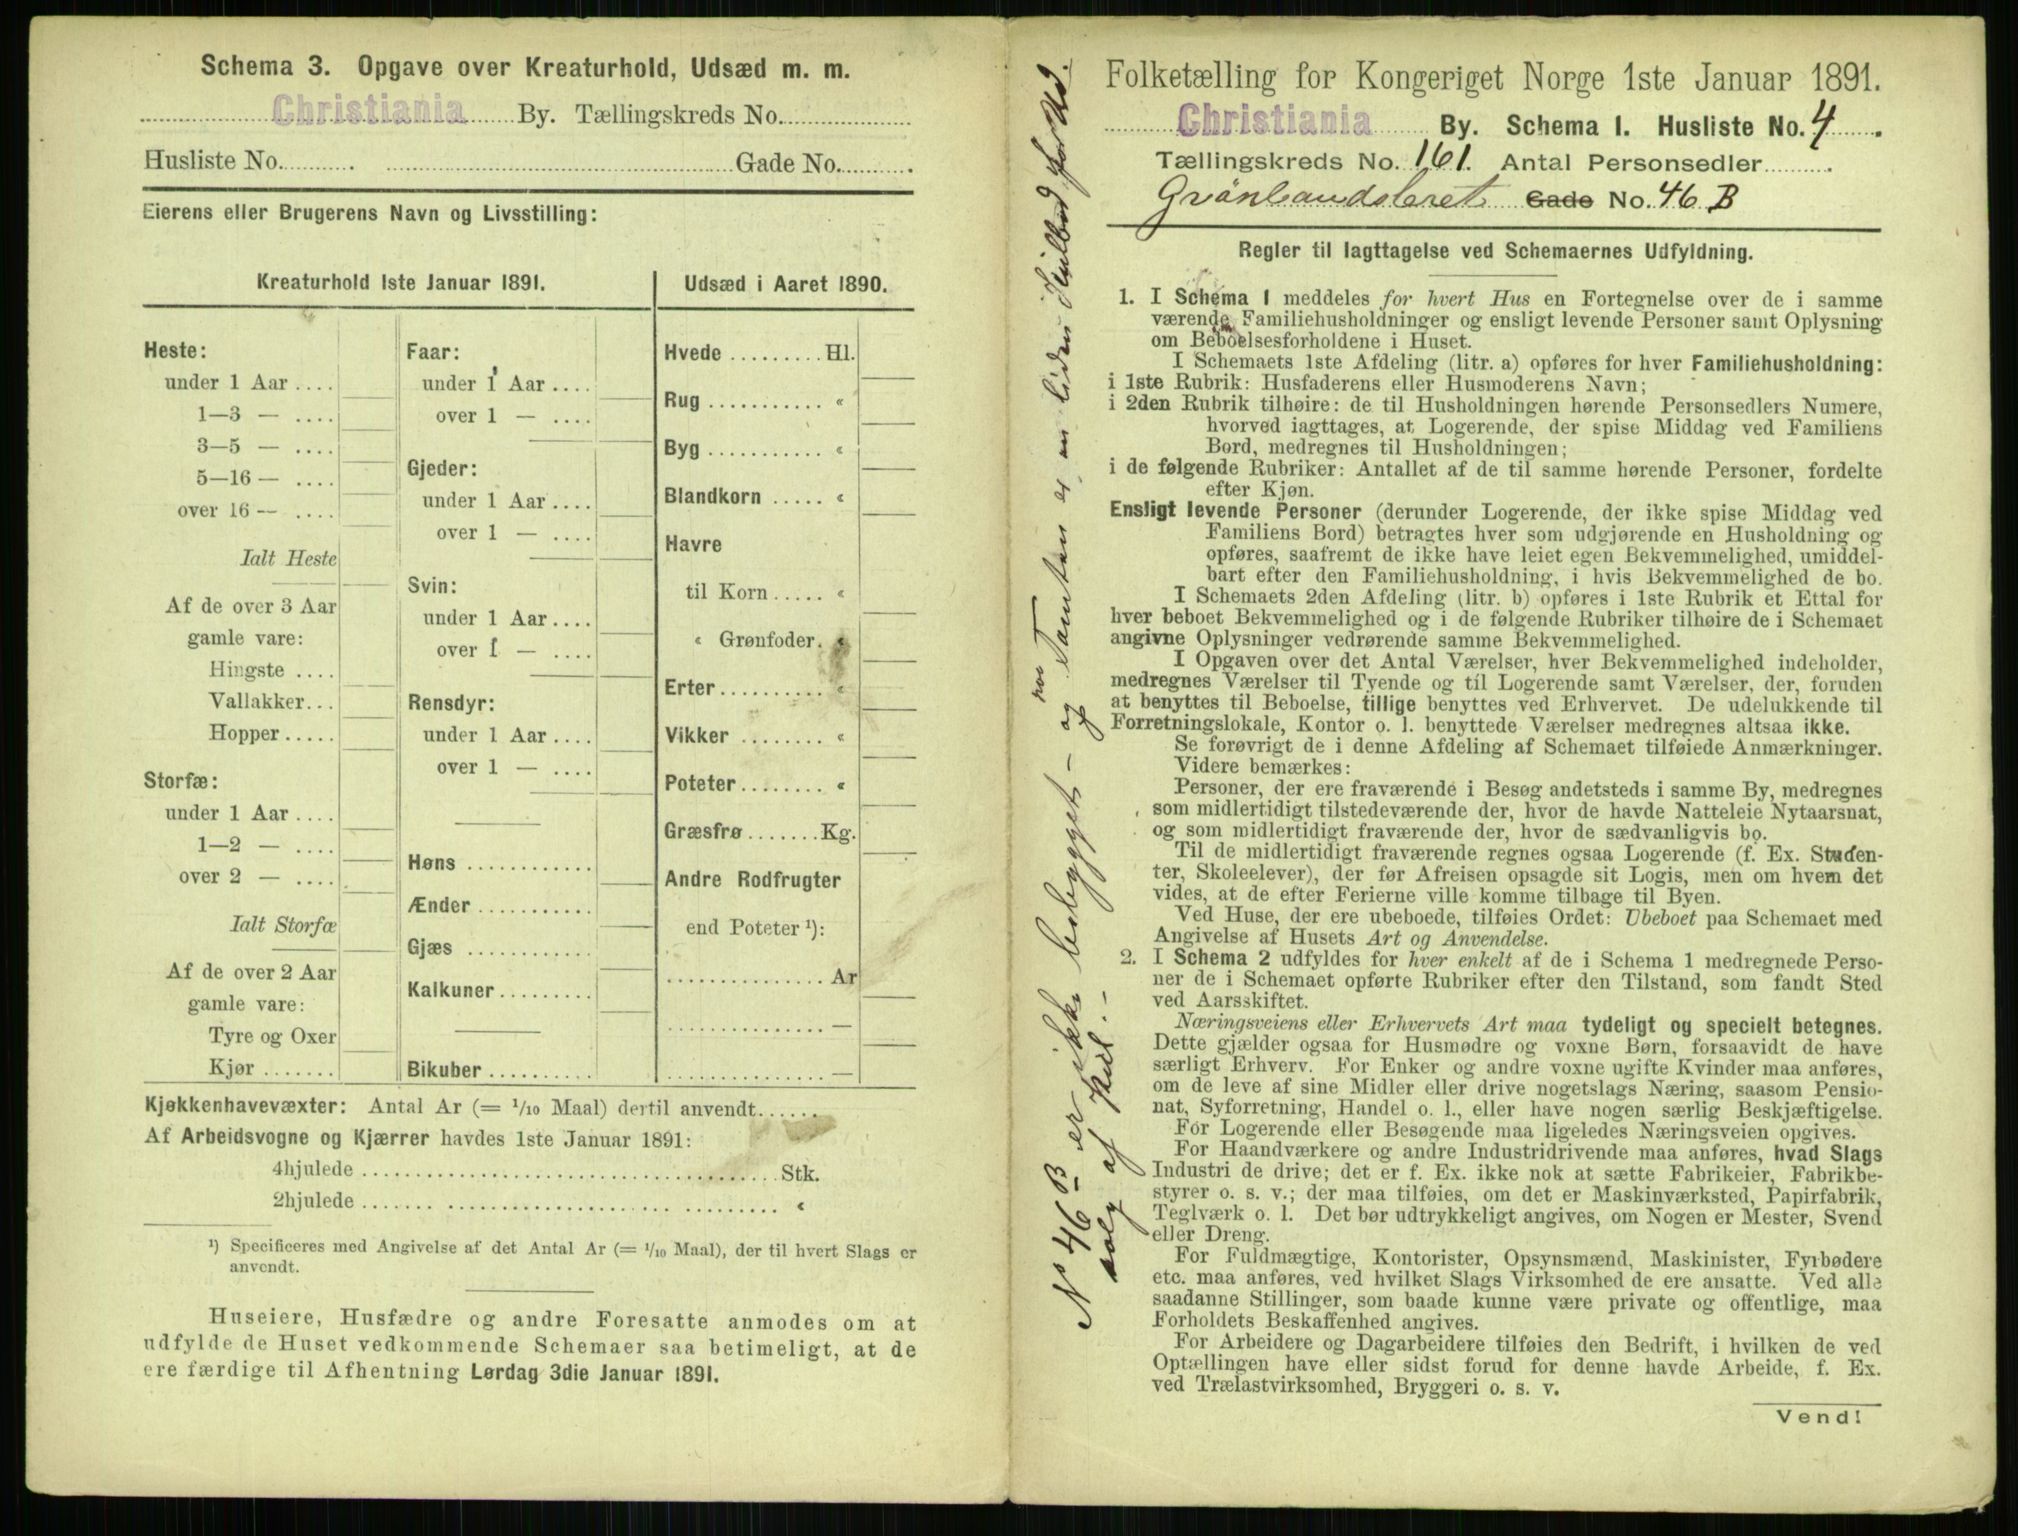 Schema 3. Opgave over Kreaturhold, Udsæd m. m.
Christiania By. Tællingskreds No.
Husliste No. Gade No.
Eierens eller Brugerens Navn og Livsstilling:
Kreaturhold 1ste Januar 1891.
Heste:
under 1 Aar ....
1—3 — ....
3—5 — ....
5—16 — ....
over 16 — ....
Ialt Heste
Af de over 3 Aar
gamle vare:
Hingste ....
Vallakker...
Hopper.....
Storfæ:
under 1 Aar ....
1—2 — ....
over 2 — ....
Ialt Storfæ
Af de over 2 Aar
gamle vare:
Tyre og Oxer
Kjør .......
Faar:
under 1 Aar ....
over 1 — ....
Gjeder:
under 1 Aar ....
over 1 — ....
Svin:
under 1 Aar ....
over 1 — ....
Rensdyr:
under 1 Aar ....
over 1 — ....
Høns ...........
Ænder ...........
Gjæs ............
Kalkuner.........
Bikuber ..........
Udsæd i Aaret 1890.
Hvede ......... Hl.
Rug ........... «
Byg ........... «
Blandkorn ..... «
Havre
til Korn ..... «
« Grønfoder. «
Erter.......... «
Vikker ........ «
Poteter ........ «
Græsfrø ....... Kg.
Andre Rodfrugter
end Poteter ¹):
............... Ar
............... —
............... —
Kjøkkenhavevæxter: Antal Ar (= 1/10 Maal) dertil anvendt......
Af Arbeidsvogne og Kjærrer havdes 1ste Januar 1891:
4hjulede ........................................ Stk.
2hjulede ........................................ «
¹) Specificeres med Angivelse af det Antal Ar (= 1/10 Maal), der til hvert Slags er
anvendt.
Huseiere, Husfædre og andre Foresatte anmodes om at
udfylde de Huset vedkommende Schemaer saa betimeligt, at de
ere færdige til Afhentning Lørdag 3die Januar 1891.
No 46 B er ikke bebygget – og paa Tomten er en liden Kulbod for Uds.
salg af Kul. –
Folketælling for Kongeriget Norge 1ste Januar 1891.
Christiania By. Schema 1. Husliste No. 4.
Tællingskreds No. 161. Antal Personsedler
Grönlandsleret Gade No. 46 B
Regler til Iagttagelse ved Schemaernes Udfyldning.
1. I Schema 1 meddeles for hvert Hus en Fortegnelse over de i samme
værende Familiehusholdninger og ensligt levende Personer samt Oplysning
om Beboelsesforholdene i Huset.
I Schemaets 1ste Afdeling (litr. a) opføres for hver Familiehusholdning:
i 1ste Rubrik: Husfaderens eller Husmoderens Navn;
i 2den Rubrik tilhøire: de til Husholdningen hørende Personsedlers Numere,
hvorved iagttages, at Logerende, der spise Middag ved Familiens
Bord, medregnes til Husholdningen;
i de følgende Rubriker: Antallet af de til samme hørende Personer, fordelte
efter Kjøn.
Ensligt levende Personer (derunder Logerende, der ikke spise Middag ved
Familiens Bord) betragtes hver som udgjørende en Husholdning og
opføres, saafremt de ikke have leiet egen Bekvemmelighed, umiddel-
bart efter den Familiehusholdning, i hvis Bekvemmelighed de bo.
I Schemaets 2den Afdeling (litr. b) opføres i 1ste Rubrik et Ettal for
hver beboet Bekvemmelighed og i de følgende Rubriker tilhøire de i Schemaet
angivne Oplysninger vedrørende samme Bekvemmelighed.
I Opgaven over det Antal Værelser, hver Bekvemmelighed indeholder,
medregnes Værelser til Tyende og til Logerende samt Værelser, der, foruden
at benyttes til Beboelse, tillige benyttes ved Erhvervet. De udelukkende til
Forretningslokale, Kontor o. l. benyttede Værelser medregnes altsaa ikke.
Se forøvrigt de i denne Afdeling af Schemaet tilføiede Anmærkninger.
Videre bemærkes:
Personer, der ere fraværende i Besøg andetsteds i samme By, medregnes
som midlertidigt tilstedeværende der, hvor de havde Natteleie Nytaarsnat,
og som midlertidigt fraværende der, hvor de sædvanligvis bo.
Til de midlertidigt fraværende regnes ogsaa Logerende (f. Ex. Studen-
ter, Skoleelever), der før Afreisen opsagde sit Logis, men om hvem det
vides, at de efter Ferierne ville komme tilbage til Byen.
Ved Huse, der ere ubeboede, tilføies Ordet: Ubeboet paa Schemaet med
Angivelse af Husets Art og Anvendelse.
2. I Schema 2 udfyldes for hver enkelt af de i Schema 1 medregnede Perso-
ner de i Schemaet opførte Rubriker efter den Tilstand, som fandt Sted
ved Aarsskiftet.
Næringsveiens eller Erhvervets Art maa tydeligt og specielt betegnes.
Dette gjælder ogsaa for Husmødre og voxne Børn, forsaavidt de have
særligt Erhverv. For Enker og andre voxne ugifte Kvinder maa anføres,
om de leve af sine Midler eller drive nogetslags Næring, saasom Pensio-
nat, Syforretning, Handel o. l., eller have nogen særlig Beskjæftigelse.
For Logerende eller Besøgende maa ligeledes Næringsveien opgives.
For Haandværkere og andre Industridrivende maa anføres, hvad Slags
Industri de drive; det er f. Ex. ikke nok at sætte Fabrikeier, Fabrikbe-
styrer o. s. v.; der maa tilføies, om det er Maskinværksted, Papirfabrik,
Teglværk o. l. Det bør udtrykkeligt angives, om Nogen er Mester, Svend
eller Dreng.
For Fuldmægtige, Kontorister, Opsynsmænd, Maskinister, Fyrbødere
etc. maa anføres, ved hvilket Slags Virksomhed de ere ansatte. Ved alle
saadanne Stillinger, som baade kunne være private og offentlige, maa
Forholdets Beskaffenhed angives.
For Arbeidere og Dagarbeidere tilføies den Bedrift, i hvilken de ved
Optællingen have eller sidst forud for denne havde Arbeide, f. Ex.
ved Trælastvirksomhed, Bryggeri o. s. v.
Vend!